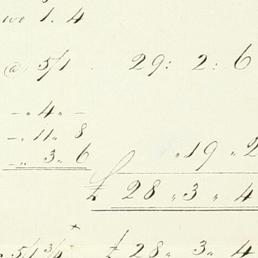 we 1. 4
@ 5/1 . 29: 2: 6
–„ 4„ –
–„ 11„ 8
–„ 3„ 6 „19 „2
£ 28 „3 „ 4
5/1 3/4 £ 28„ 3„ 4